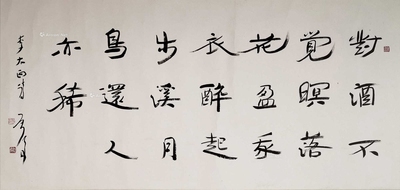 對酒不
覺暝落
花盈我
衣醉起
步溪月
鳥還人
亦稀
李太白